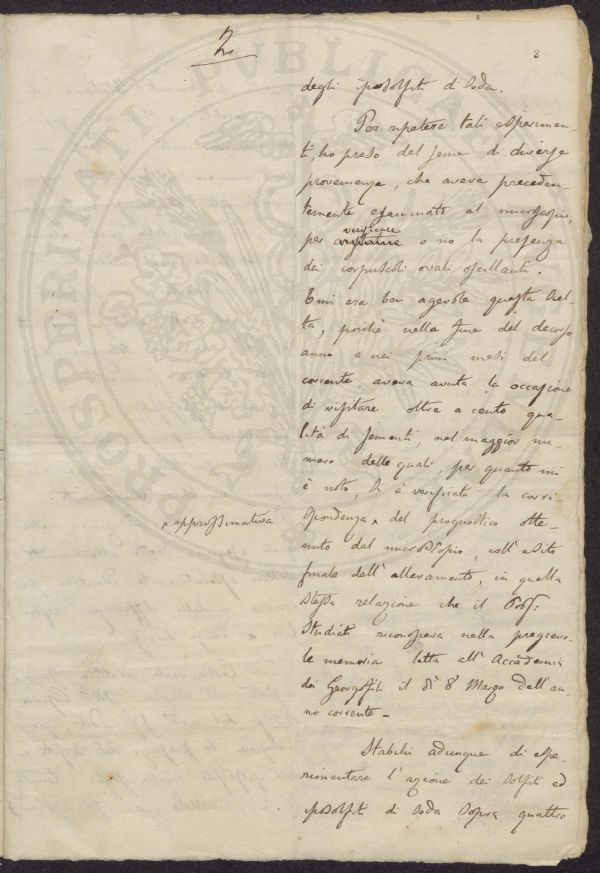 2
2
degli iposolfiti di Soda.
Per ripetere tali esperimen-
ti, ho preso del seme di diverse
provenienze, che aveva preceden-
temente esaminato al microscopio,
verificare
per o no la presenza
dei corpuscoli ovali oscillanti.
E mi era ben agevole questa Scel-
ta, poichè nella fine del decorso
anno e nei primi mesi del
corrente, aveva avuta la occasione
di visitare oltre a cento qua-
lità di sementi, nel maggior nu-
mero delle quali, per quanto mi
è noto, Si è verificata la corri-
approssimativa
spondenza del prognostico otte-
nuto dal microscopio, coll'esito
finale dell'allevamento, in quella
stessa relazione che il Prof:
Studiati riconosceva nella pregievo-
le memoria letta all'Accademia
dei Georgofili il dì 8 Marzo dell'an-
no corrente -
Stabilii adunque di espe-
rimentare l'azione dei Solfiti ed
iposolfiti di Soda Sopra quattro
PROSPERITATI PVBLICAE